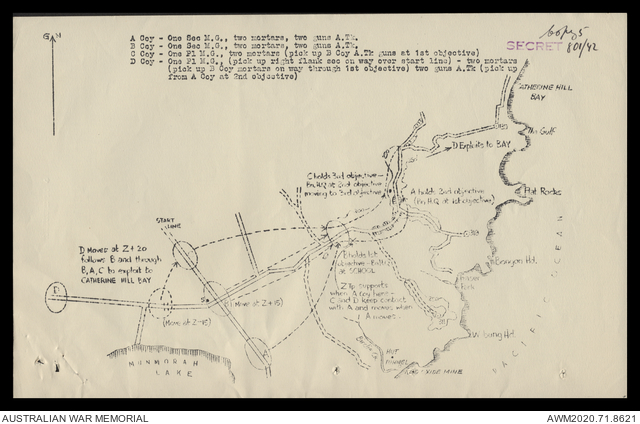 copy 5
SECRET 801/42
A Coy - One Sec M.G., two mortars, two guns A.Tk.
B Coy - One Sec M.G., two mortars, two guns A.Tk.
C Coy - One Pl M.G., two mortars (pick up B Coy A.Tk guns at 1st objective)
D Coy - One Pl M.G., (pick up right flank sec on way over start line) - two mortars
(pick up B Coy mortars on way through 1st objective) two guns A.Tk (pick up
from A Coy at 2nd objective)
G N
CATHERINE HILL
BAY
The Gulf
D Exploits to BAY
C holds 3rd objective
Bn.H.Q at 2nd objective
moving to 3rd objective
A holds 2nd objective
(Bn.H.Q at 1st objective)
Flat Rocks
START
LINE
D Moves at Z+20
follows B and through
B, A, C to exploit to
CATHERINE HILL BAY
B holds 1st
objective
at SCHOOL
D
(Move at Z+15)
(Move at Z-15)
supports
when A goes
C and D keep contact
with A and move when
A moves.
Bongon Hd.
Frazer
Park
Wybung Hd.
PACIFIC OCEAN
MUNMORAH
LAKE
HUT
OXIDE MINE
AUSTRALIAN WAR MEMORIAL
AWM2020.71.8621